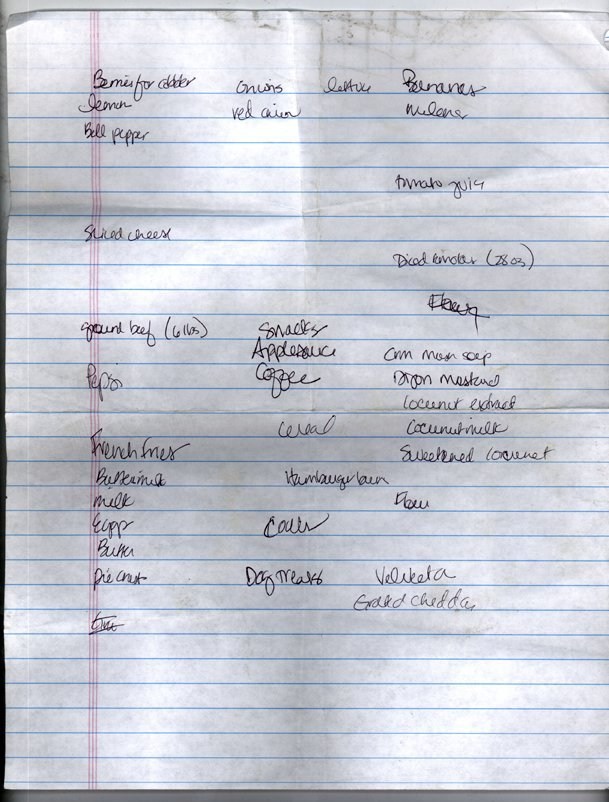 Berries for cobbler onions lettuce Bananas
lemon red onion melons
Bell pepper
tomato juice
Sliced cheese
Diced tomatoes (28 oz)
ground beef (6 lbs) Snacks
Applesauce Crm mush soup
Pepsi Coffee Dijon mustard
coconut extract
cereal Coconut milk
French fries Sweetened coconut
Buttermilk Hamburger bun
milk Flour
Eggs
Butter
pie crust Dog Treats Velveeta
Grated cheddar